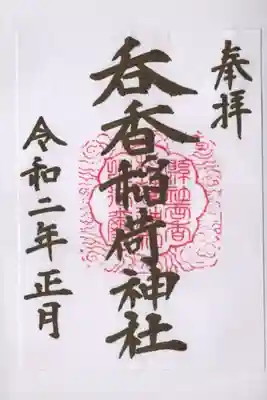 奉拝
呑香稲荷神社
令和二年正月